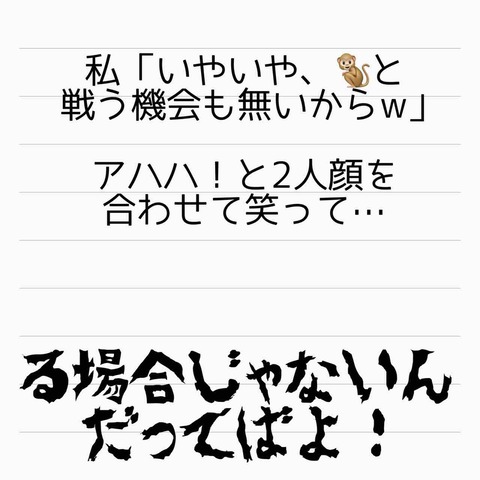 私「いやいや、🐒と
戦う機会も無いからw」
アハハ！と2人顔を
合わせて笑って…
る場合じゃないん
だってばよ！